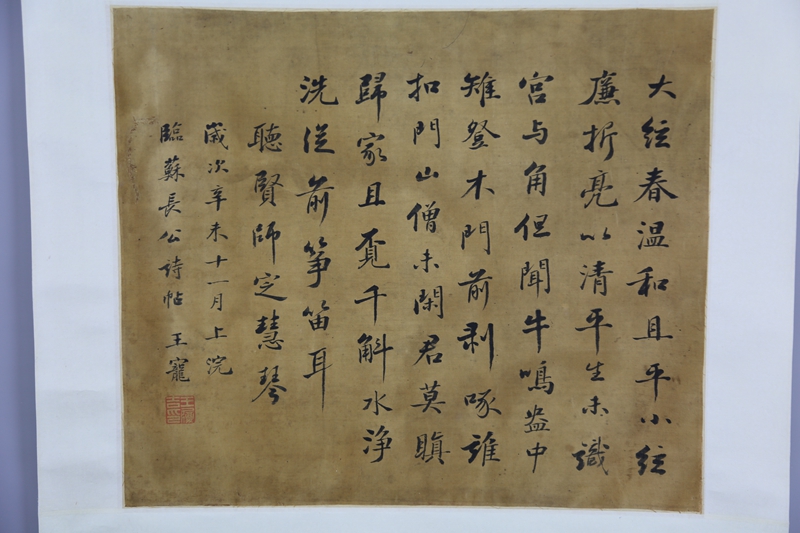 大絃春温和且平小絃
廉折亮以清平生未識
宫与角但聞牛鳴盎中
雉登木門前剥啄誰
扣門山僧未閑君莫瞋
歸家且覓千斛水净
洗從前筝笛耳
聽賢師定慧琴
歲次辛未十一月上浣
臨蘇長公詩帖 王寵